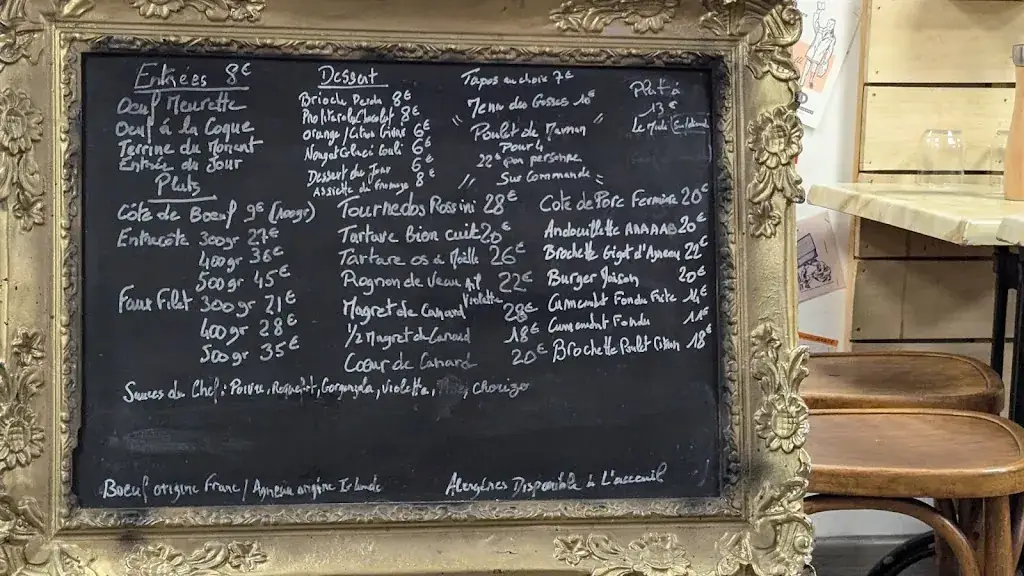 Entrées 8€
Oeuf Meurette
Oeuf à la Coque
Terrine du Moment
Entrée du Jour
Dessert
Brioche Perdu 8€
Profiterole chocolat 8€
Orange/Citron Givré 6€
Nougat Glacé Couli 6€
Dessert du Jour 6€
Assiette de Fromage 8€
Tapas au choix 7€
Menu des Gosses 10€
" Poulet de Maman "
Pour 4
22€ par personne
" Sur Commande "
Plat à
13€
Le Midi
Plats
Côte de Boeuf 9€ (100gr)
Entrecote 300gr 27€
400gr 36€
500gr 45€
Faux Filet 300gr 21€
400gr 28€
500gr 35€
Tournedos Rossini 28€
Tartare Bien Cuit 20€
Tartare os à Moëlle 26€
Rognon de Veau 22€
Magret de Canard Violette 28€
1/2 Magret de Canard 18€
Coeur de Canard 20€
Cote de Porc Fermière 20€
Andouillette AAAAA 20€
Brochette Gigot d'Agneau 22€
Burger Maison 20€
Camembert Fondu Frite
Camembert Fondu
Brochette Poulet Citron 18€
Sauces du Chef : Poivre, Roquefort, Gorgonzola, Violette, , Chorizo
Boeuf origine Franc / Agneau origine Irlande
Alergènes Disponible à L'acceuil